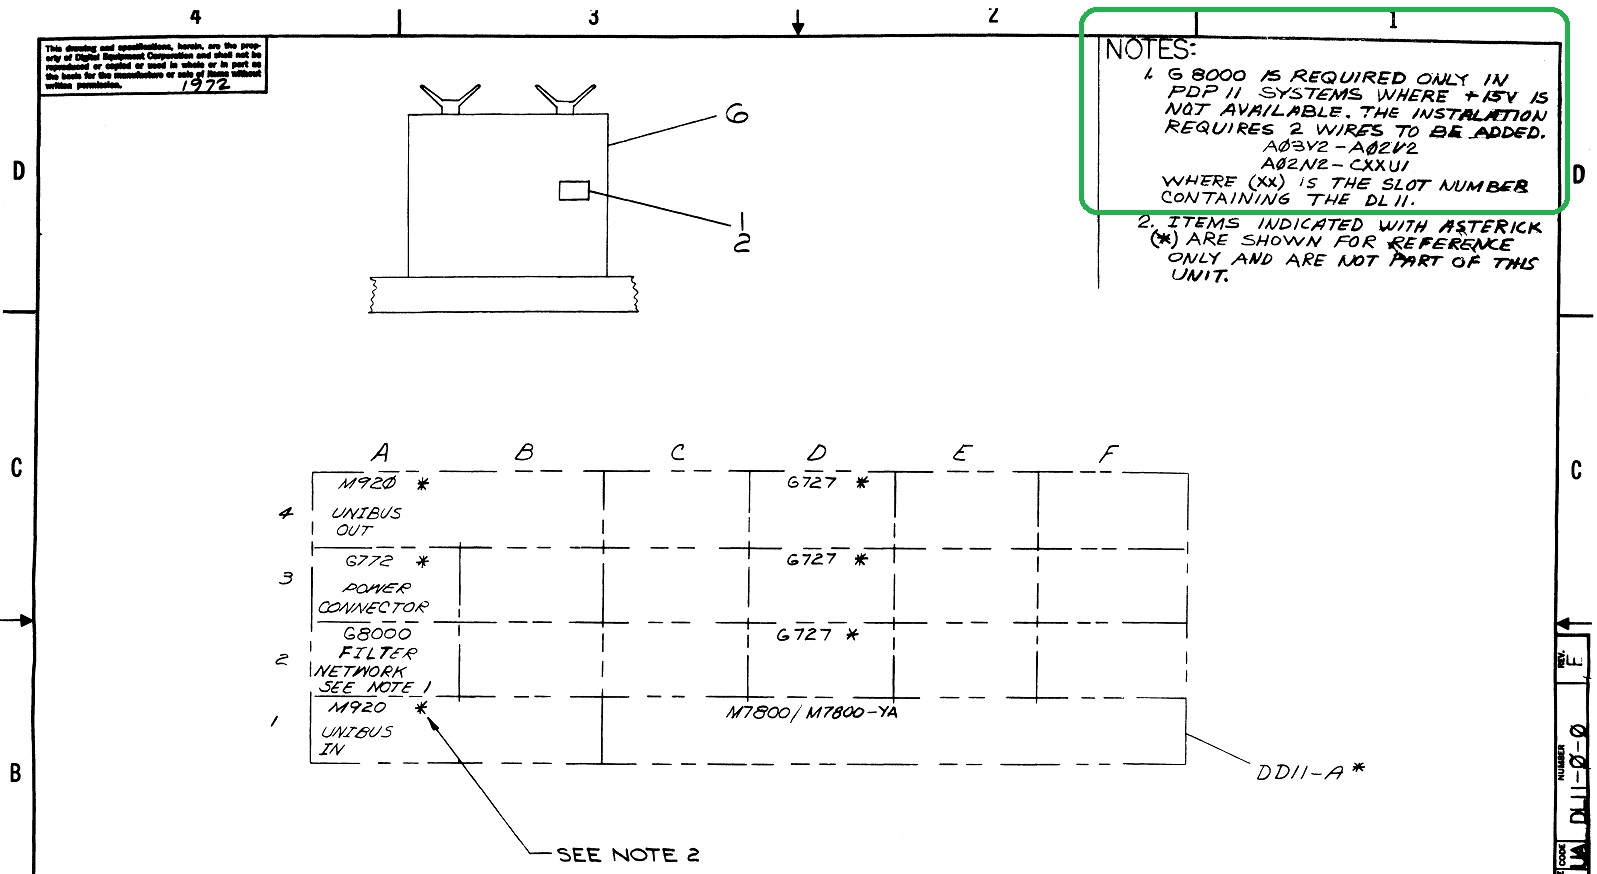 4 3 2 1
This drawing and specifications, herein, are the prop-
erty of Digital Equipment Corporation and shall not be
reproduced or copied or used in whole or in part as
the basis for the manufacture or sale of items without
written permission. 1972
NOTES:
1. G8000 IS REQUIRED ONLY IN
PDP 11 SYSTEMS WHERE +15V IS
NOT AVAILABLE. THE INSTALATION
REQUIRES 2 WIRES TO BE ADDED.
AØ3V2-AØ2V2
AØ2N2-CXXU1
WHERE (XX) IS THE SLOT NUMBER
CONTAINING THE DL11.
2. ITEMS INDICATED WITH ASTERICK
(*) ARE SHOWN FOR REFERENCE
ONLY AND ARE NOT PART OF THIS
UNIT.
6
1
2
D D
A B C D E F
C C
4
M92Ø *
UNIBUS
OUT
G727 *
3
G772 *
POWER
CONNECTOR
G727 *
2
G8000
FILTER
NETWORK
SEE NOTE 1
G727 *
1
M920 *
UNIBUS
IN
M7800/M7800-YA
DD11-A *
B
SEE NOTE 2
REV.
E
NUMBER
DL11-Ø-Ø
CODE
UA